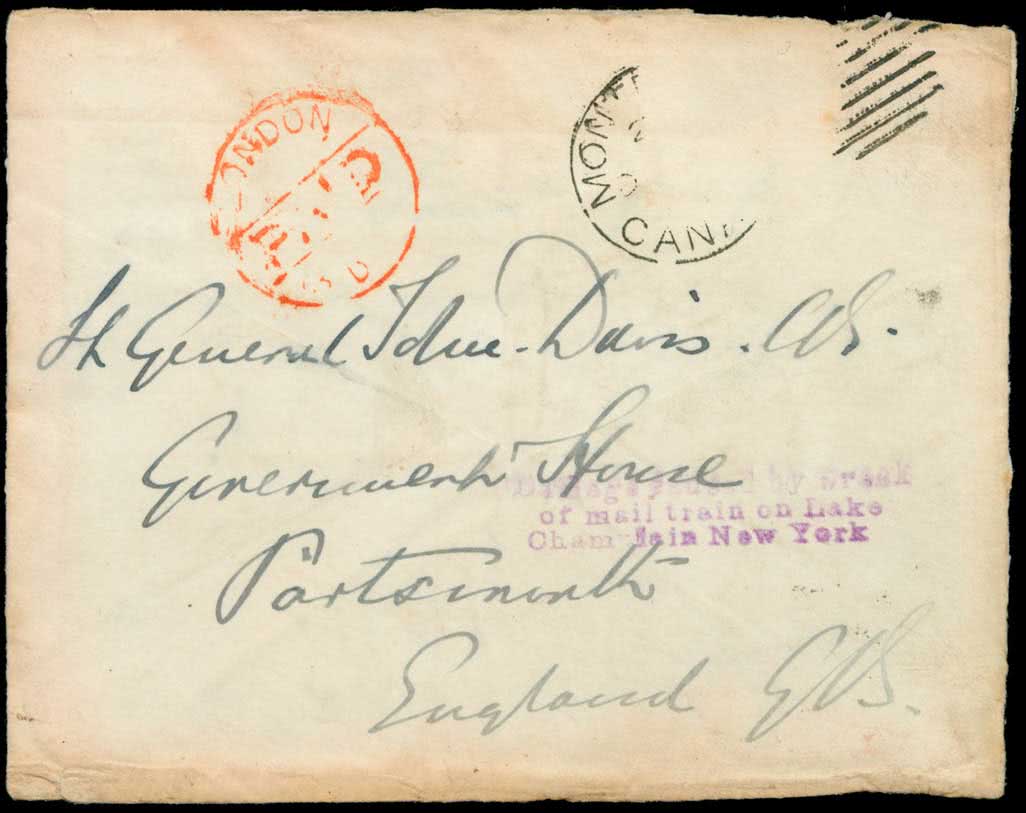 LONDON
PAID
MONTRE
CANA
Lt General Davis. CB.
Government House
Portsmouth
England GB.
Damage caused by wreck
of mail train on Lake
Champlain New York